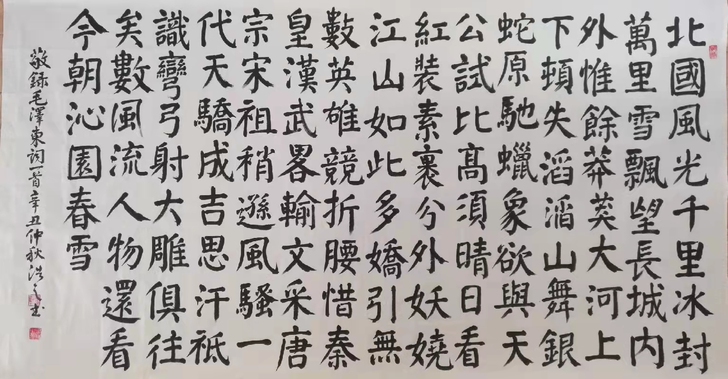 北國風光千里冰封
萬里雪飄望長城內
外惟餘莽莽大河上
下頓失滔滔山舞銀
蛇原馳蠟象欲與天
公試比高須晴日看
紅裝素裹分外妖嬈
江山如此多嬌引無
數英雄競折腰惜秦
皇漢武畧輸文采唐
宗宋祖稍遜風騷一
代天驕成吉思汗祗
識彎弓射大雕俱往
矣數風流人物還看
今朝沁園春雪
敬錄毛澤東詞一首辛丑仲秋浩之書